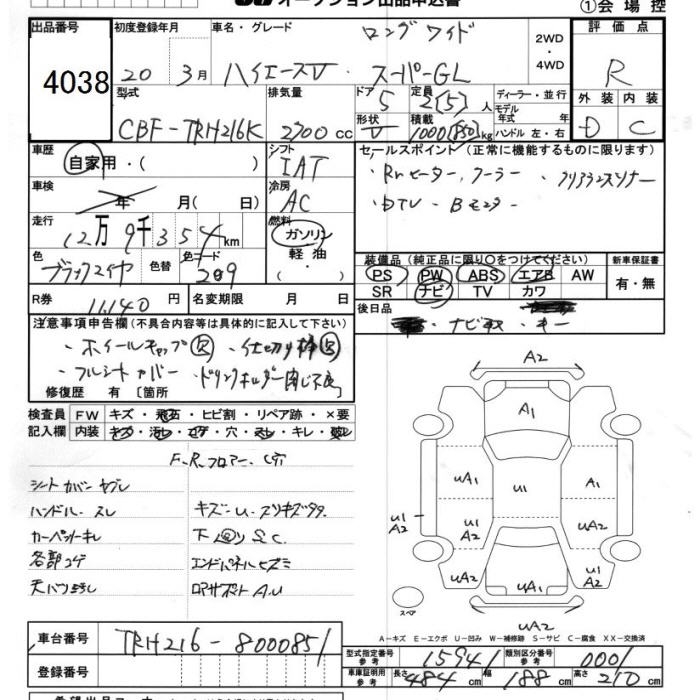 オークション出品申込書
①会場控
出品番号 4038
初度登録年月 20年 3月
車名・グレード ロングワイド
ハイエースV・スーパーGL
2WD・4WD
評価点 R
外装 D 内装 C
型式 CBF-TRH216K
排気量 2700cc
ドア 5
形状 V
定員 2(5)人
積載 1000(850)kg
ディーラー・並行
モデル年式 年式
ハンドル 左・右
車歴 自家用・( )
シフト IAT
セールスポイント(正常に機能するものに限ります)
・Rrヒーター、クーラー ・クリアランスソナー
・DTV ・Bモニター
車検 年 月( 日)
冷房 AC
走行 12万9千354km
燃料 ガソリン
軽油
・( )
色 ブラックマイカ 色替 色コード 209
装備品(純正品に限り○をつけてください)
PS PW ABS エアB AW
SR ナビ TV カワ
新車保証書 有・無
R券 11,140円 名変期限 月 日
後日品 ・ナビ ・キー
注意事項申告欄(不具合内容等は具体的に記入して下さい)
・ホイールキャップ欠 ・仕切り棒欠
・フルシートカバー ・ドリンクホルダー閉じ不良
修復歴 有 [箇所
検査員記入欄 FW キズ・飛石・ヒビ割・リペア跡・×要
内装 キズ・汚レ・コゲ・穴・スレ・キレ・破レ
F、R、フロアー、サビ
シートカバーヤブレ
ハンドル、スレ キズ・U、スリキズ多
カーペットキレ 下回りS.C.
各部コゲ エンドパネルヒズミ
天バリ汚レ ロアサポートA.U
A2
A1
UA1
U1
A1
U1
A2
U1
A2
UA2
UA2
UA1
UA2
UA2
スペア
A-キズ E-エクボ U-凹み W-補修跡 S-サビ C-腐食 XX-交換済
車台番号 TRH216-8000851
登録番号
型式指定番号 参考 15941 類別区分番号 参考 0001
車庫証明用参考 長さ 484cm 幅 188cm 高さ 210cm